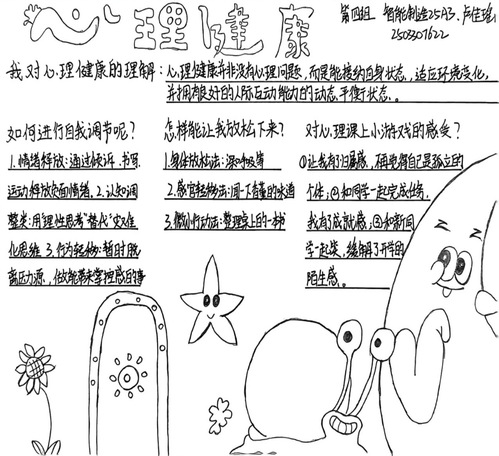 心理健康
第四组 智能制造25A3. 卢佳瑶
2503301622
我对心理健康的理解：心理健康并非没有心理问题，而是能接纳自身状态，适应环境变化，
并拥有良好的人际互动能力的动态平衡状态。
如何进行自我调节呢？
1.情绪释放：通过倾诉、书写
运动释放负面情绪。2.认知调
整法：用“理性思考”替代“灾难
化思维 3.行为轻松：暂时脱
离压力源，做能带来掌控感的事
怎样能让我放松下来？
1.身体放松法：深呼吸等
2.感官轻松法：闻一下有趣的味道
3.微小行动法：整理桌上的一本书
对心理课上小游戏的感受？
①让我有了归属感，不再觉得自己是孤立的
个体；②和同学一起完成任务，
我有了成就感；③和新同
学一起笑，缓解了开学的
陌生感。